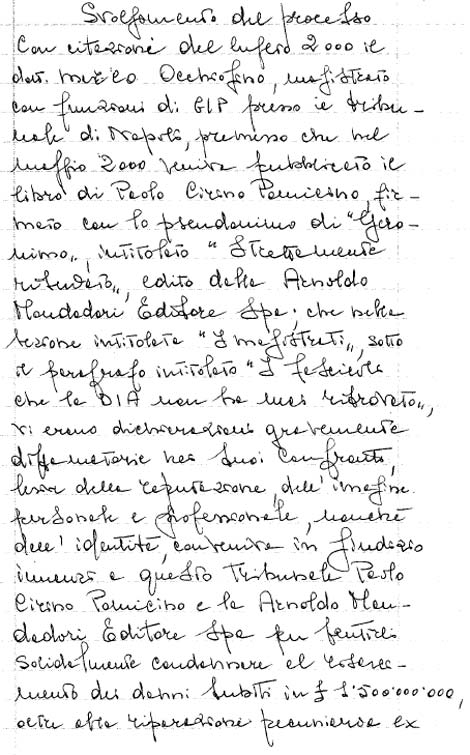 Svolgimento del processo
Con citazione del luglio 2000 il
dott. Mirco Occhiofino, magistrato
con funzioni di GIP presso il Tribu-
nale di Napoli, premesso che nel
maggio 2000 veniva pubblicato il
libro di Paolo Cirino Pomicino, fir-
mato con lo pseudonimo di "Gero-
nimo", intitolato "Strettamente
riservato", edito dalla Arnoldo
Mondadori Editore Spa; che nella
sezione intitolata "I magistrati", sotto
il paragrafo intitolato "I fascicoli
che la DIA non ha mai ritrovato",
vi erano dichiarazioni gravemente
diffamatorie nei suoi confronti,
lesive della reputazione, dell'immagine
personale e professionale, nonché
dell'identità, conveniva in giudizio
innanzi a questo Tribunale Paolo
Cirino Pomicino e la Arnoldo Mon-
dadori Editore Spa per sentirli
solidalmente condannare al risarci-
mento dei danni subiti in £ 1.500.000.000,
oltre alla riparazione pecuniaria ex